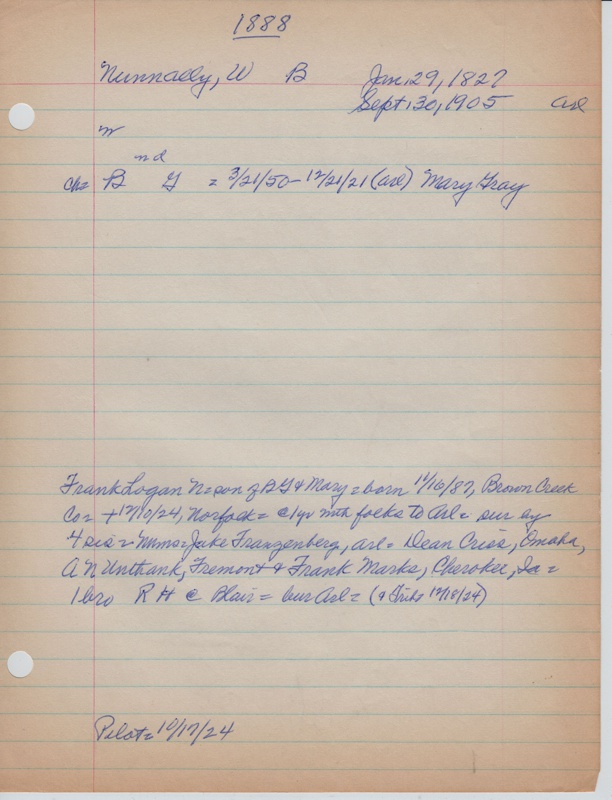 1888
Nunnally, W B Jan. 29, 1827
Sept. 30, 1905 Arl
m
nd
ch= B G = 3/21/50 - 12/21/21 (arl) Mary Gray
Frank Logan N = son of BG & Mary = born 11/16/87, Brown Creek
Co = + 12/10/24, Norfolk = c/yr with folks to Arl = sur by
4 sis = Mmes Jake Franzenberg, Arl = Dean Criss, Omaha,
A N Unthank, Fremont & Frank Marks, Cherokee, Ia =
1 bro R H @ Blair = bur Arl = (a Trib 12/18/24)
Pilot = 10/17/24